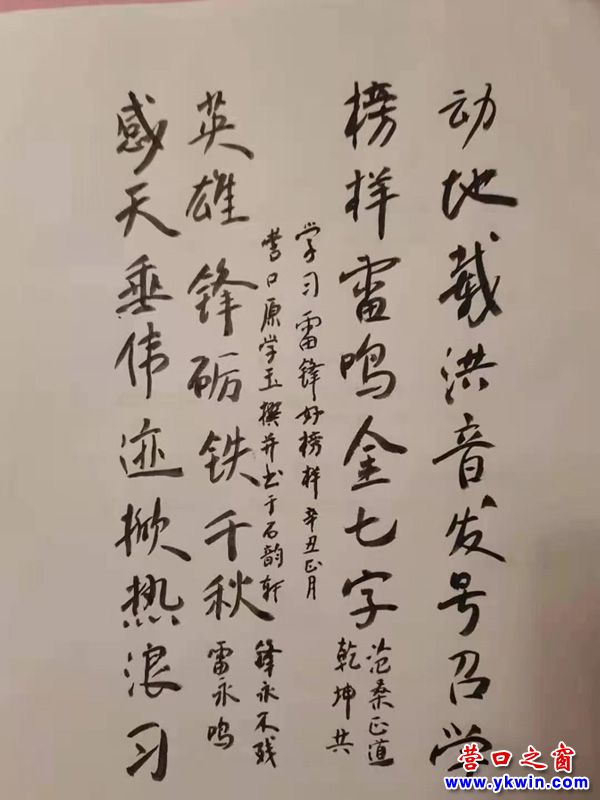 动地载洪音发号召学
榜样雷鸣金七字
范桑正道
乾坤共
感天垂伟迹掀热浪习
英雄锋砺铁千秋
雷永鸣
锋永不残
学习雷锋好榜样 辛丑正月
营口原学玉撰并书于石韵轩
营口之窗
www.ykwin.com